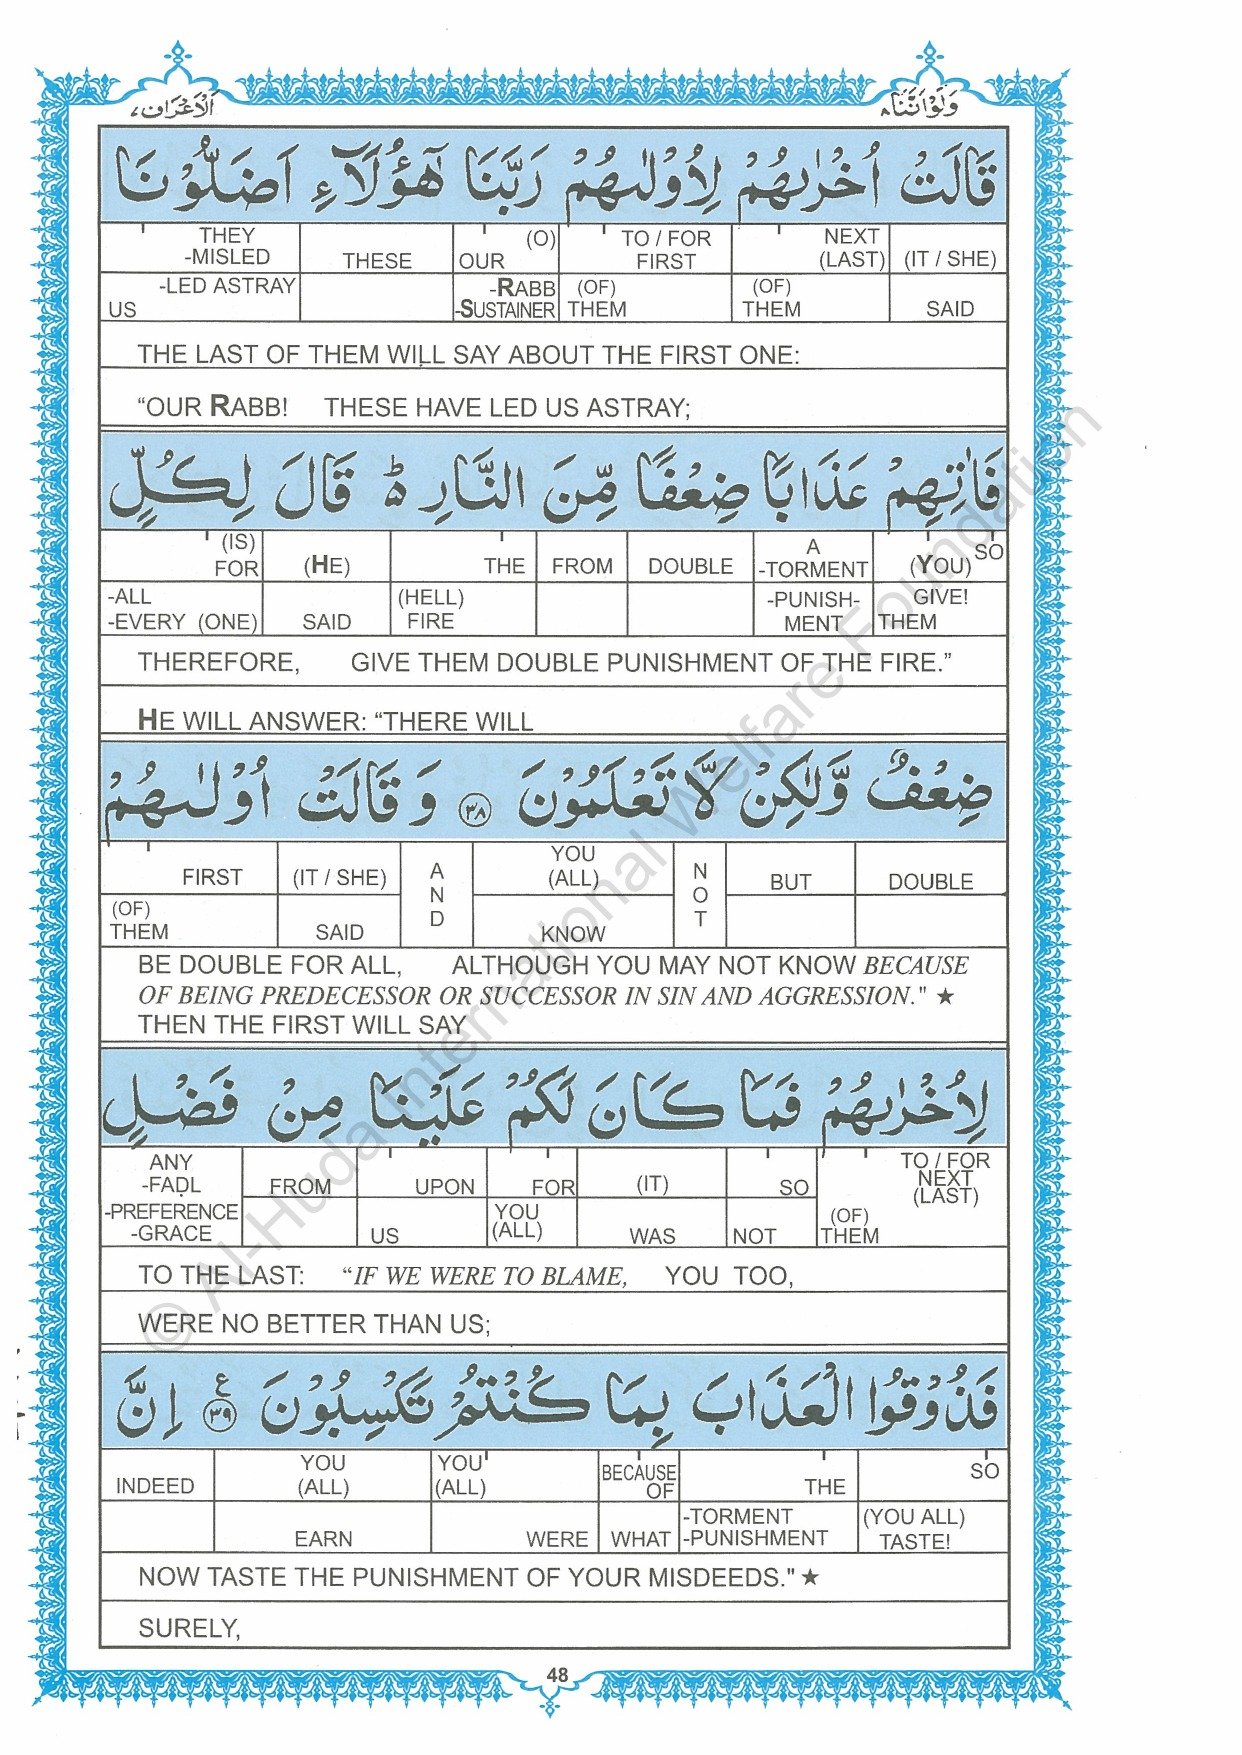 وَلَوْاَنَّنَا ٨
اَلْاَعْرَاف ٧
قَالَتْ اُخْرٰىهُمْ لِاُوْلٰىهُمْ رَبَّنَا هٰٓؤُلَآءِ اَضَلُّوْنَا
THEY -MISLED THESE (O) OUR TO / FOR FIRST NEXT (LAST) (IT / SHE)
-LED ASTRAY US -RABB -SUSTAINER (OF) THEM (OF) THEM SAID
THE LAST OF THEM WILL SAY ABOUT THE FIRST ONE:
“OUR RABB! THESE HAVE LED US ASTRAY;
فَاٰتِهِمْ عَذَابًا ضِعْفًا مِّنَ النَّارِ ؕ قَالَ لِكُلٍّ
(IS) FOR (HE) THE FROM DOUBLE A -TORMENT (YOU) SO
-ALL -EVERY (ONE) SAID (HELL) FIRE -PUNISH- MENT GIVE! THEM
THEREFORE, GIVE THEM DOUBLE PUNISHMENT OF THE FIRE.”
HE WILL ANSWER: “THERE WILL
ضِعْفٌ وَّلٰكِنْ لَّا تَعْلَمُوْنَ ﴿٣٨﴾ وَ قَالَتْ اُوْلٰىهُمْ
FIRST (IT / SHE) AND YOU (ALL) NOT BUT DOUBLE
(OF) THEM SAID KNOW
BE DOUBLE FOR ALL, ALTHOUGH YOU MAY NOT KNOW BECAUSE
OF BEING PREDECESSOR OR SUCCESSOR IN SIN AND AGGRESSION." ★
THEN THE FIRST WILL SAY
لِاُخْرٰىهُمْ فَمَا كَانَ لَكُمْ عَلَيْنَا مِنْ فَضْلٍ
ANY -FAḌL FROM UPON FOR (IT) SO TO / FOR NEXT (LAST)
-PREFERENCE -GRACE US YOU (ALL) WAS NOT (OF) THEM
TO THE LAST: “IF WE WERE TO BLAME, YOU TOO,
WERE NO BETTER THAN US;
فَذُوْقُوا الْعَذَابَ بِمَا كُنْتُمْ تَكْسِبُوْنَ ﴿٣٩﴾ ع اِنَّ
INDEED YOU (ALL) YOU (ALL) BECAUSE OF THE SO
EARN WERE WHAT -TORMENT -PUNISHMENT (YOU ALL) TASTE!
NOW TASTE THE PUNISHMENT OF YOUR MISDEEDS." ★
SURELY,
48
© Al-Huda International Welfare Foundation